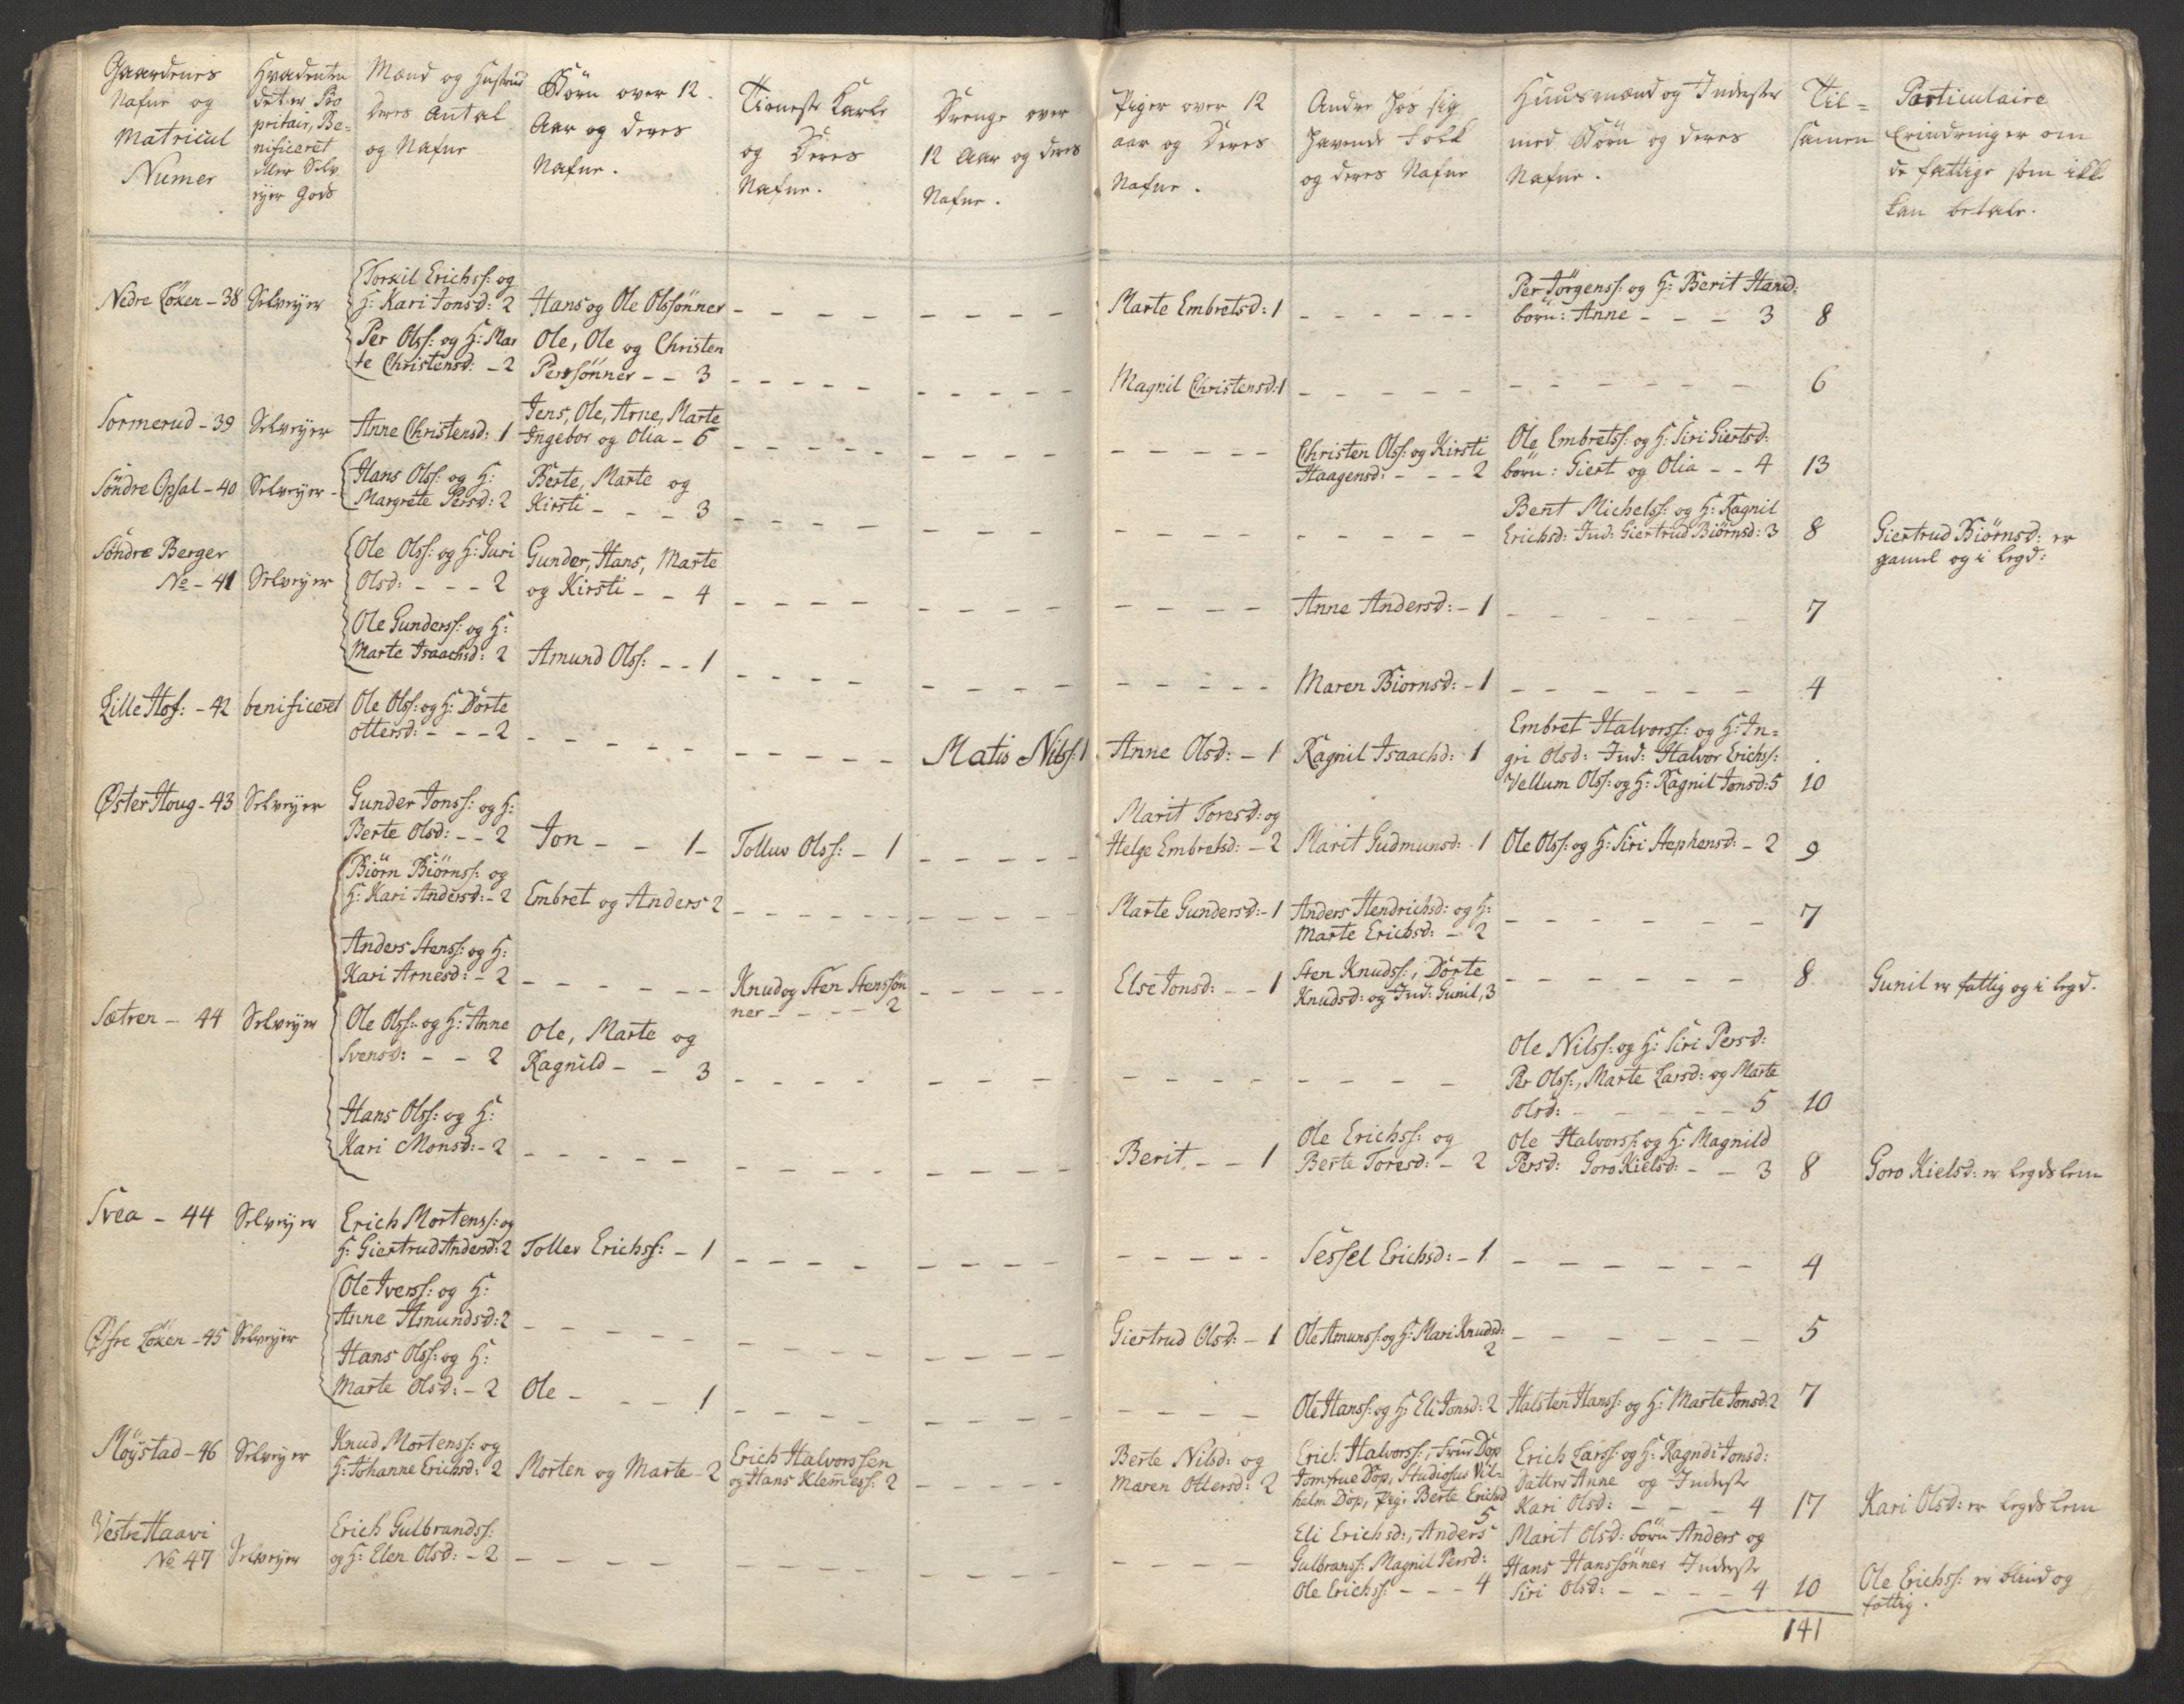 Gaardenes
Nafne og
Matricul
Numer
Hvad enten
det er Pro
pritair, Be=
nificeret
eller Selv
eyer Gods
Mænd og Hustrue
deres Antal
og Nafne
Börn over 12
Aar og deres
Nafne.
Tieneste Karle
og Deres
Nafne.
Drenge over
12 Aar og deres
Nafne.
Piger over 12
aar og Deres
Nafne.
Andre hos sig
havende Folk
og deres Nafne
Huusmænd og Inderster
med Börn og deres
Nafne.
Til=
samen
Particulaire
Erindringer om
de fattige som ikke
kan betale.
Nedre Löken - 38 Selveyer
Torkil Erichss: og
H: Kari Jonsd: 2
Hans og Ole Olssönner
Marte Embretsd: 1
Per Jörgenss: og H: Berit Hansd:
börn: Anne - - - 3
8
Per Olss: og H: Mar
te Christensd: - 2
Ole, Ole og Christen
Perssönner - - 3
Magnil Christensd: 1
6
Tormerud - 39 Selveyer
Anne Christensd: 1
Jens, Ole, Arne, Marte
Ingebor og Olia - 6
Christen Olss: og Kirsti
Haagensd: - - - 2
Ole Embretss: og H: Siri Giertsd:
börn: Giert og Olia - - 4
13
Söndre Opsal - 40 Selveyer
Hans Olss: og H:
Margrete Persd: 2
Berte, Marte og
Kirsti - - - 3
Bent Michelss: og H: Ragnil
Erichsd: Ind: Giertrud Biörnsd: 3
8
Giertrud Biörnsd: er
gamel og i legd:
Söndre Berger
No - 41 Selveyer
Ole Olss: og H: Guri
Olsd: - - - 2
Gunder, Hans, Marte
og Kirsti - - 4
Anne Andersd: - 1
7
Ole Gunderss: og H:
Marte Isaachsd: 2
Amund Olss: - - 1
Maren Biornsd: - 1
4
Lille Hof: - 42 benificeret
Ole Olss: og H: Dorte
ottersd: - - - 2
Matis Nilss: 1
Anne Olsd: - 1
Ragnil Isaachd: 1
Embret Halvorss: og H: In=
gri Olsd: Ind: Halvor Erichss:
Vellum Olss: og H: Ragnil Jonsd: 5
10
Øster Houg - 43 Selveyer
Gunder Jonss: og H:
Berte Olsd: - - 2
Jon - - 1 -
Tollus Olss: - 1
Marit Toresd: og
Helge Embretsd: - 2
Marit Gudmunsd: - 1
Ole Olss: og H: Siri Stephensd: - 2
9
Biörn Biörnss: og
H: Kari Andersd: - 2
Embret og Anders 2
Marte Gundersd: - 1
Anders Hendrichsd: og H:
Marte Erichsd: - 2
7
Anders Stenss: og H:
Kari Arnesd: - 2
Knud og Sten Stenssön
ner - - - - 2
Else Jonsd: - - 1
Sten Knudss:, Dorte
Knudsd: og Ind: Gunil, 3
8
Gunil er fattig og i legd.
Sætren - 44 Selveyer
Ole Olss: og H: Anne
Svensd: - - 2
Ole, Marte og
Ragnild - - 3
Ole Nilss: og H: Siri Persd:
Per Olss:, Marte Larsd: og Marte
Olsd: - - - - - 5
10
Hans Olss: og H:
Kari Monsd: - 2
Berit - - 1
Ole Erichss: og
Berte Toresd: - 2
Ole Halvorss: og H: Magnild
Persd: Goro Kielsd: - - 3
8
Goro Kielsd: er legds lem
Svea - 44 Selveyer
Erich Mortenss: og
H: Giertrud Andersd: 2
Tollev Erichss: - 1
Sessel Erichsd: - 1
4
Øfre Löken - 45 Selveyer
Ole Iverss: og H:
Anne Amundsd: 2
Giertrud Olsd: - 1
Ole Amunss: og H: Mari Knudsd:
2
5
Hans Olss: og H:
Marte Olsd: - 2
Ole - - - 1
Ole Hanss: og H: Eli Jonsd: 2
Halsten Hanss: og H: Marte Jonsd: 2
7
Möystad - 46 Selveyer
Knud Mortenss: og
H: Johanne Erichsd: 2
Morten og Marte - 2
Erich Halvorssen
og Hans Klemess: 2
Berte Nilsd: og
Maren Ottersd: 2
Erich Halvorss:, Frue Dop
Jomfrue Dop, Studiosus Vil=
helm Dop, Pige Berte Erichsd
5
Erich Larss: og H: Ragndi Jonsd:
Datter Anne og Inderste
Kari Olsd: - - - - 4
17
Kari Olsd: er legds lem
Vestre Haavi
No 47 Selveyer
Erich Gulbrandss:
og H: Elen Olsd: - 2
Eli Erichsd:, Anders
Gulbranss: Magnil Persd:
Ole Erichss: - - - 4
Marit Olsd: börn Anders og
Hans Hanssönner Inderste
Siri Olsd: - - - - 4
10
Ole Erichss: er blind og
fattig.
141